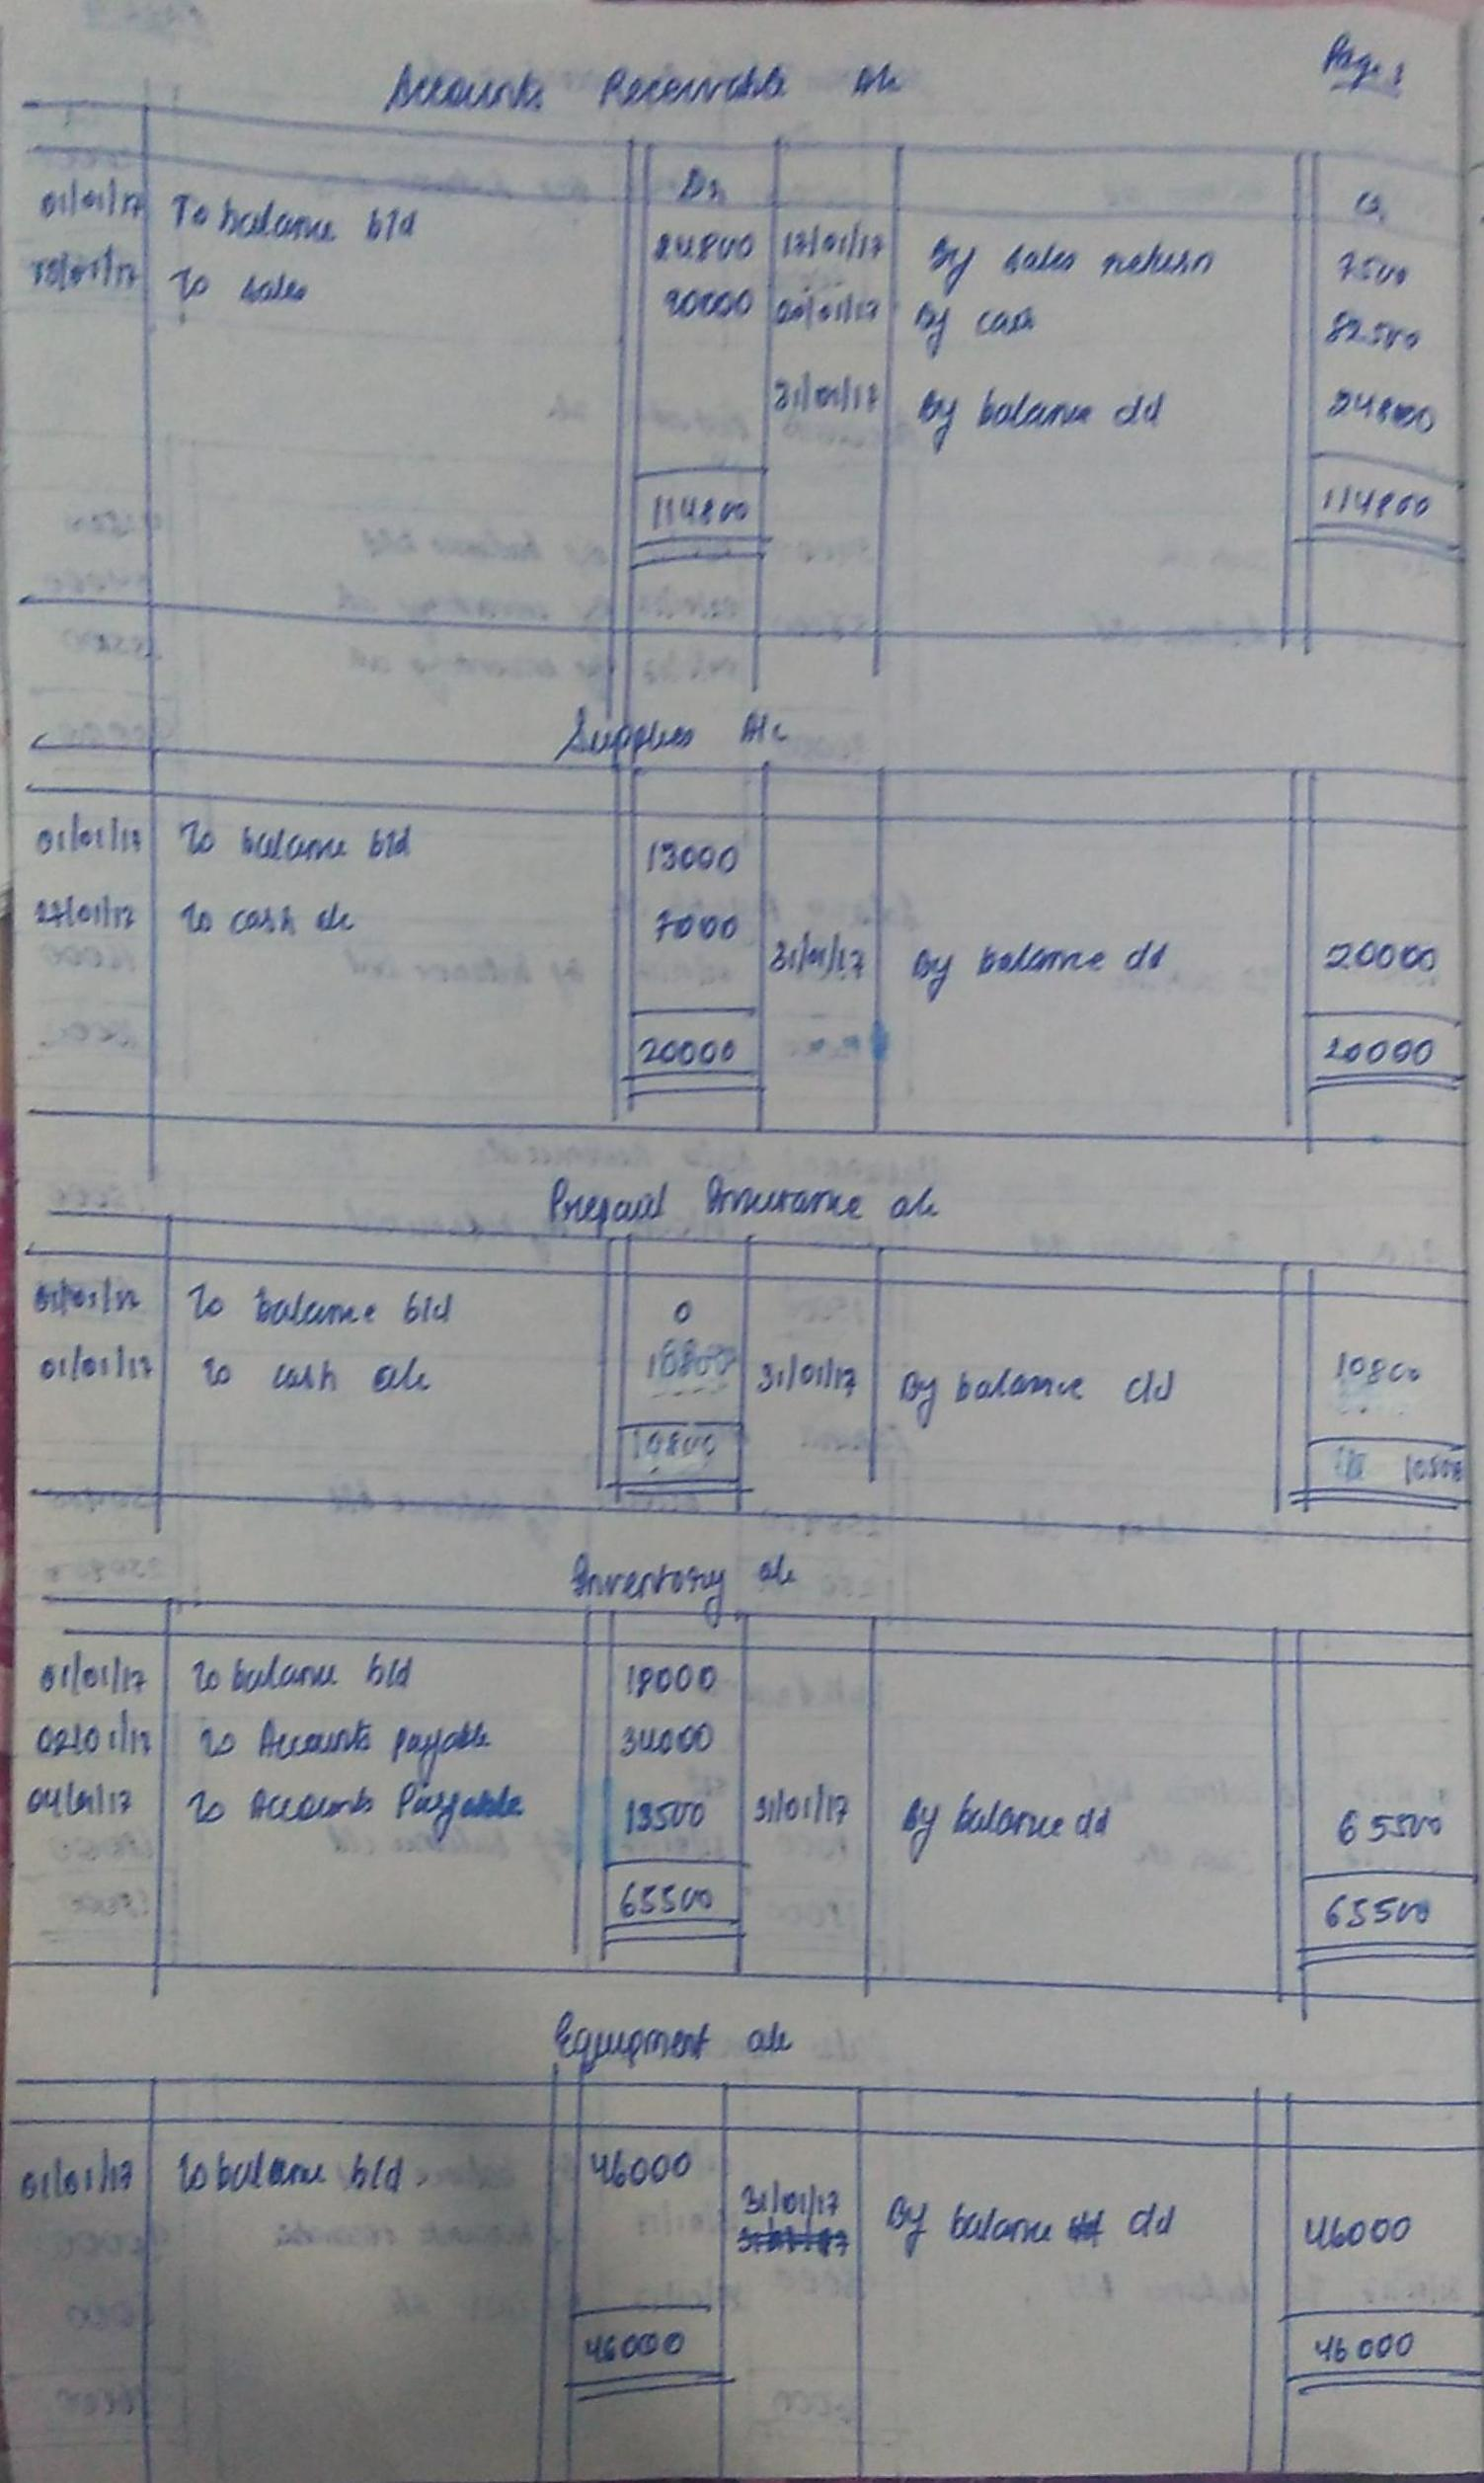 Page 1
Accounts Receivable A/c
Dr Cr
01/01/17 To balance b/d 24800 17/01/17 By sales return 7500
To sales 90000 20/01/17 By cash 82500
31/01/17 By balance c/d 24800
114800 114800
Supplies A/c
01/01/17 To balance b/d 13000
27/01/17 To cash a/c 7000
31/01/17 By balance c/d 20000
20000 20000
Prepaid Insurance a/c
To balance b/d 0
01/01/17 To cash a/c 10800 31/01/17 By balance c/d 10800
10800 10800
Inventory a/c
01/01/17 To balance b/d 18000
02/01/17 To Accounts payable 34000
04/01/17 To Accounts Payable 13500 31/01/17 By balance c/d 65500
65500 65500
Equipment a/c
01/01/17 To balance b/d. 46000
31/01/17 By balance c/d 46000
46000 46000